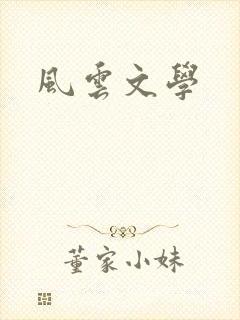 風雲文學
董家小妹